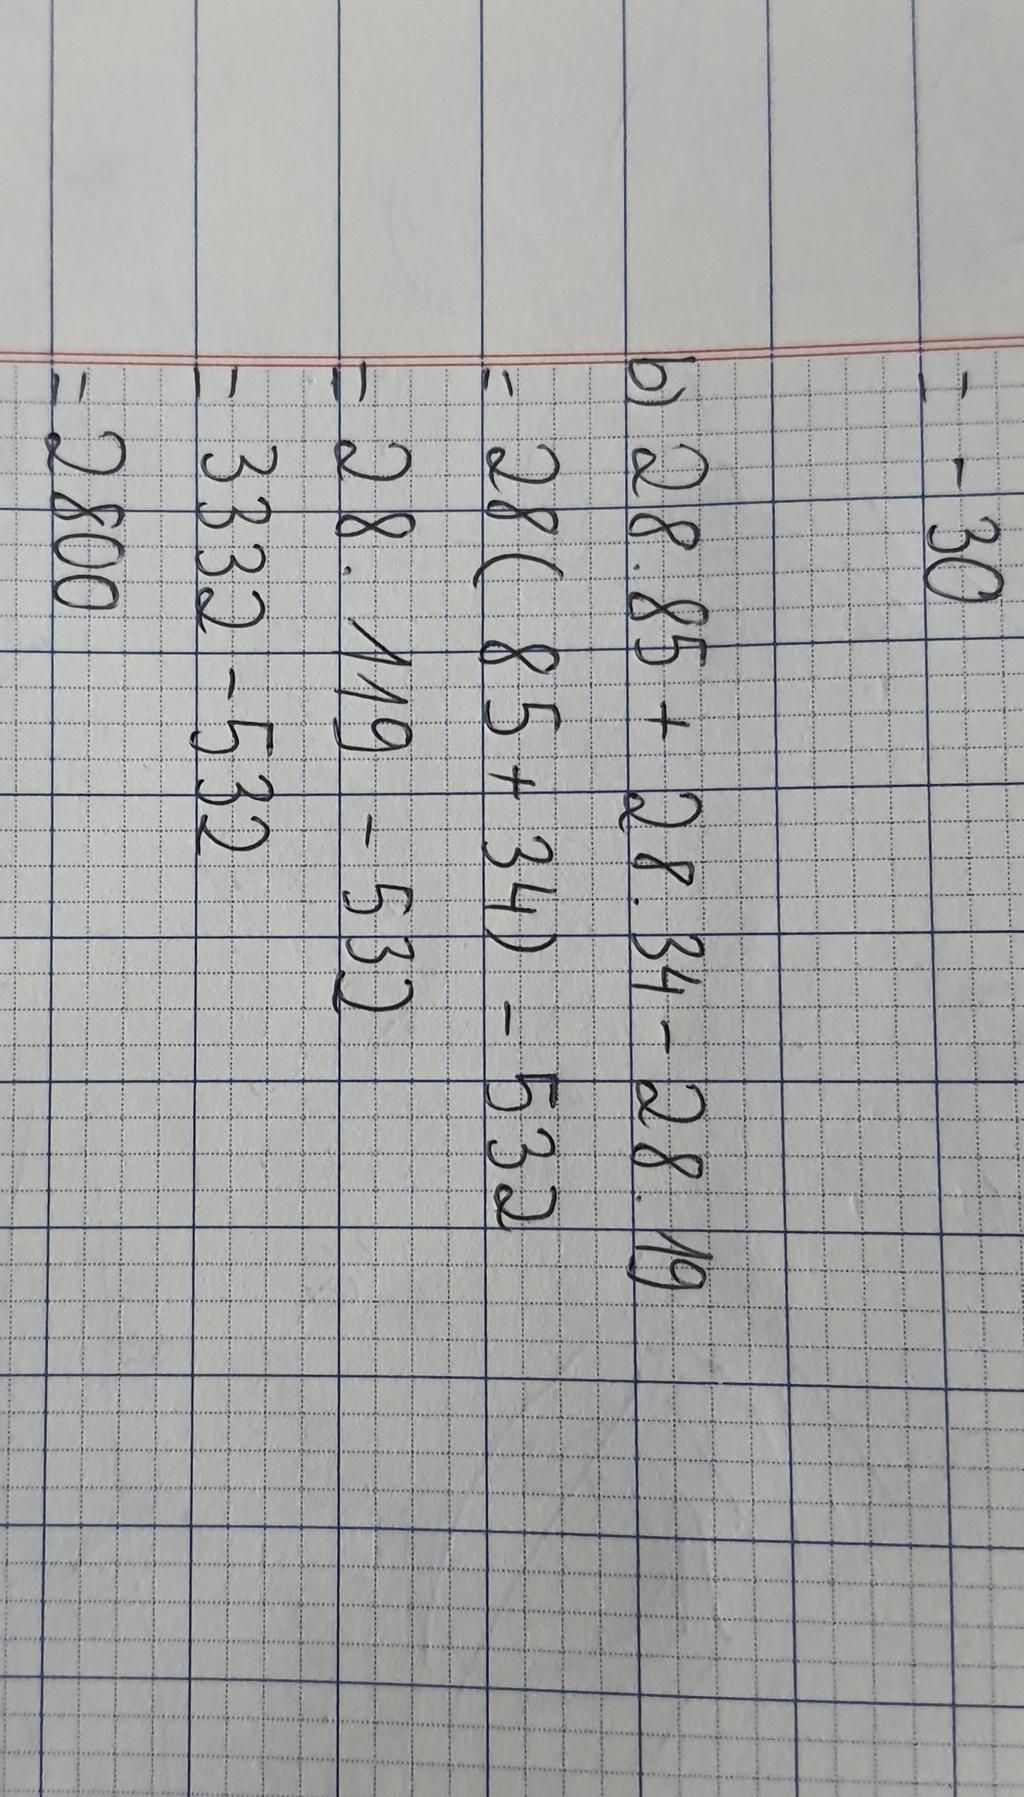 = - 30
b) 28.85 + 28.34 - 28.19
= 28( 85 + 34) - 532
= 28. 119 - 532
= 3332 - 532
= 2800